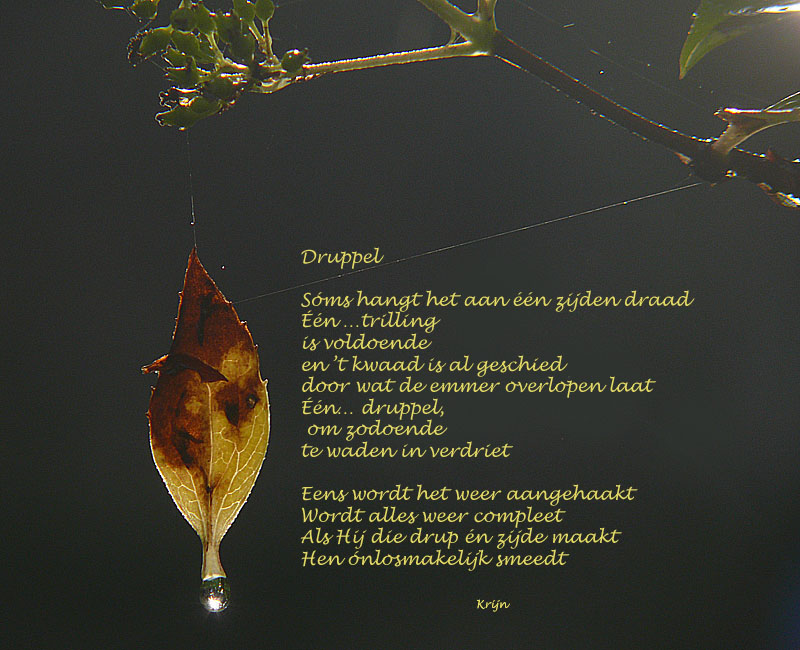 Druppel

Sóms hangt het aan één zijden draad
Één ...trilling
is voldoende
en 't kwaad is al geschied
door wat de emmer overlopen laat
Één... druppel,
om zodoende
te waden in verdriet

Eens wordt het weer aangehaakt
Wordt alles weer compleet
Als Hij die drup én zijde maakt
Hen ónlosmakelijk smeedt

Krijn